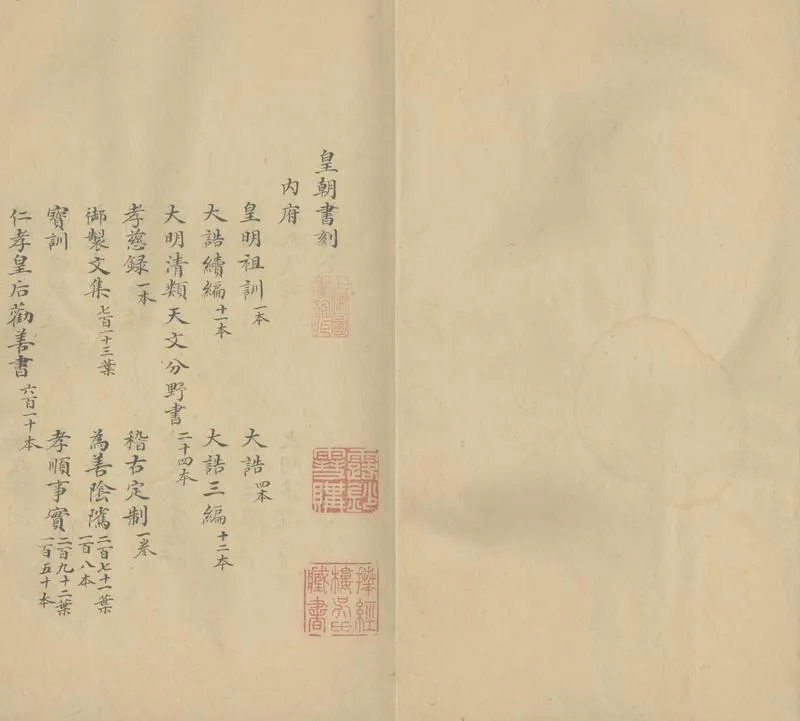 皇朝書刻
內府
皇明祖訓 一本 大誥 四本
大誥續編 十一本 大誥三編 十二本
大明清類天文分野書 二十四本
孝慈録 一本 稽古定制 一本
御製文集 七百一十三葉 為善陰隲 二百七十一葉 一百八本
寶訓 孝順事實 二百九十二葉 一百五十本
仁孝皇后勸善書 六百一十本
上海圖書館藏
雲間
揅經樓吳氏藏書